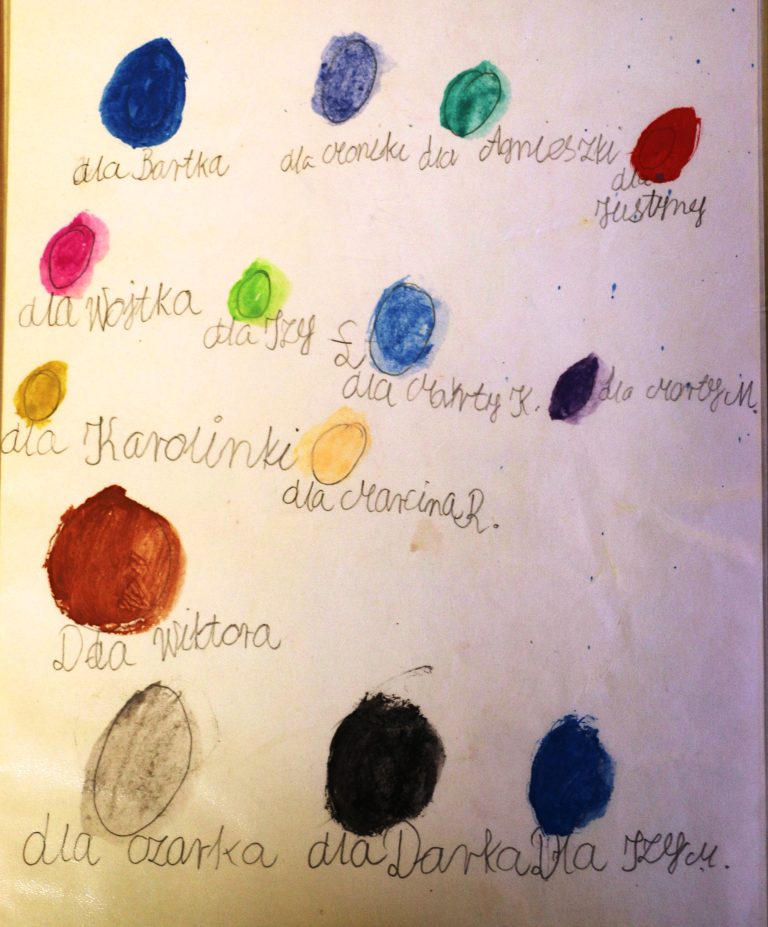 dla Bartka
dla Moniki
dla Agnieszki
dla
Justyny
dla Wojtka
dla IZY Ł
dla Marty K.
dla Marty M.
dla Karolinki
dla Marcina R.
Dla Wiktora
dla ozarka
dla Darka
Dla IZY M.